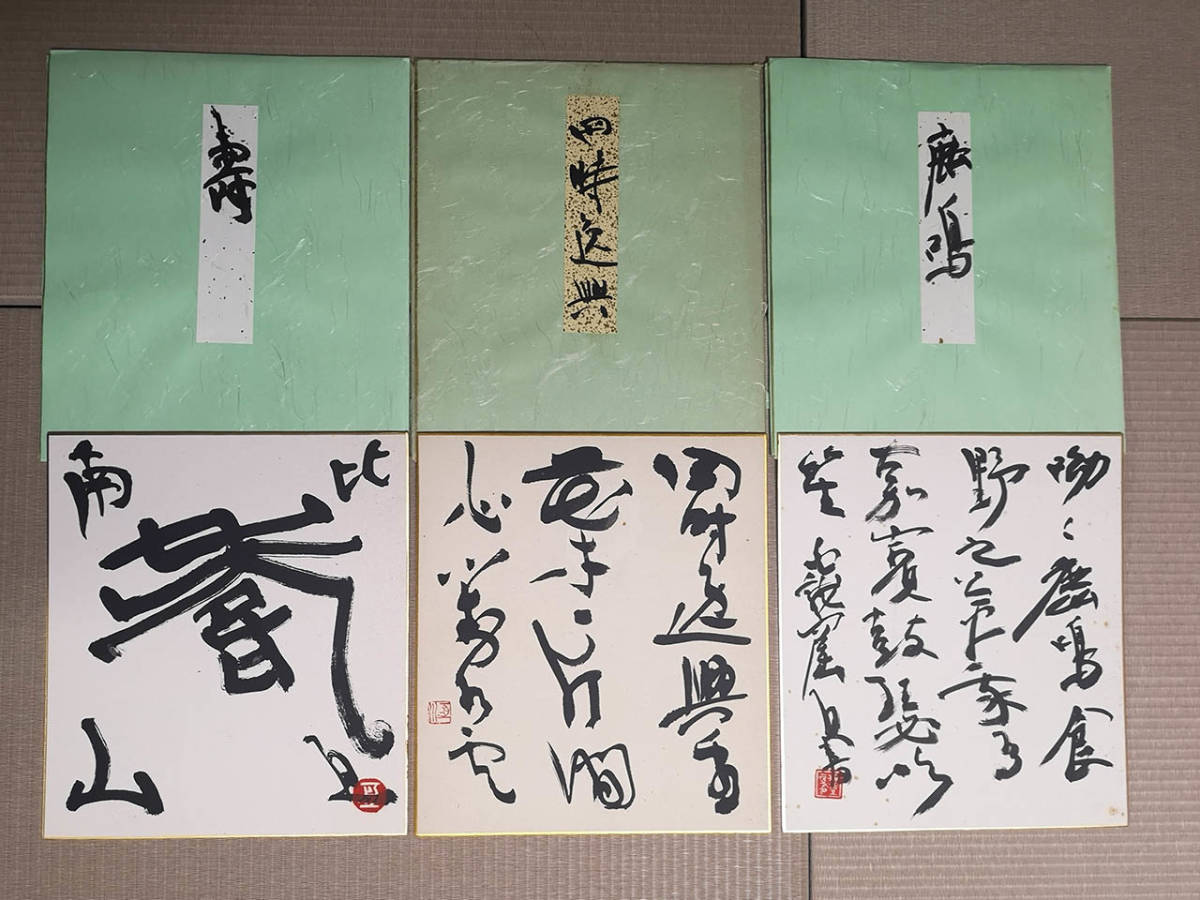 壽
四時逸興
鹿鳴
壽
比
南
山
四時逸興看
花木一片閒
心對水雲
呦々鹿鳴食
野之苹我有
嘉賓鼓瑟吹
笙